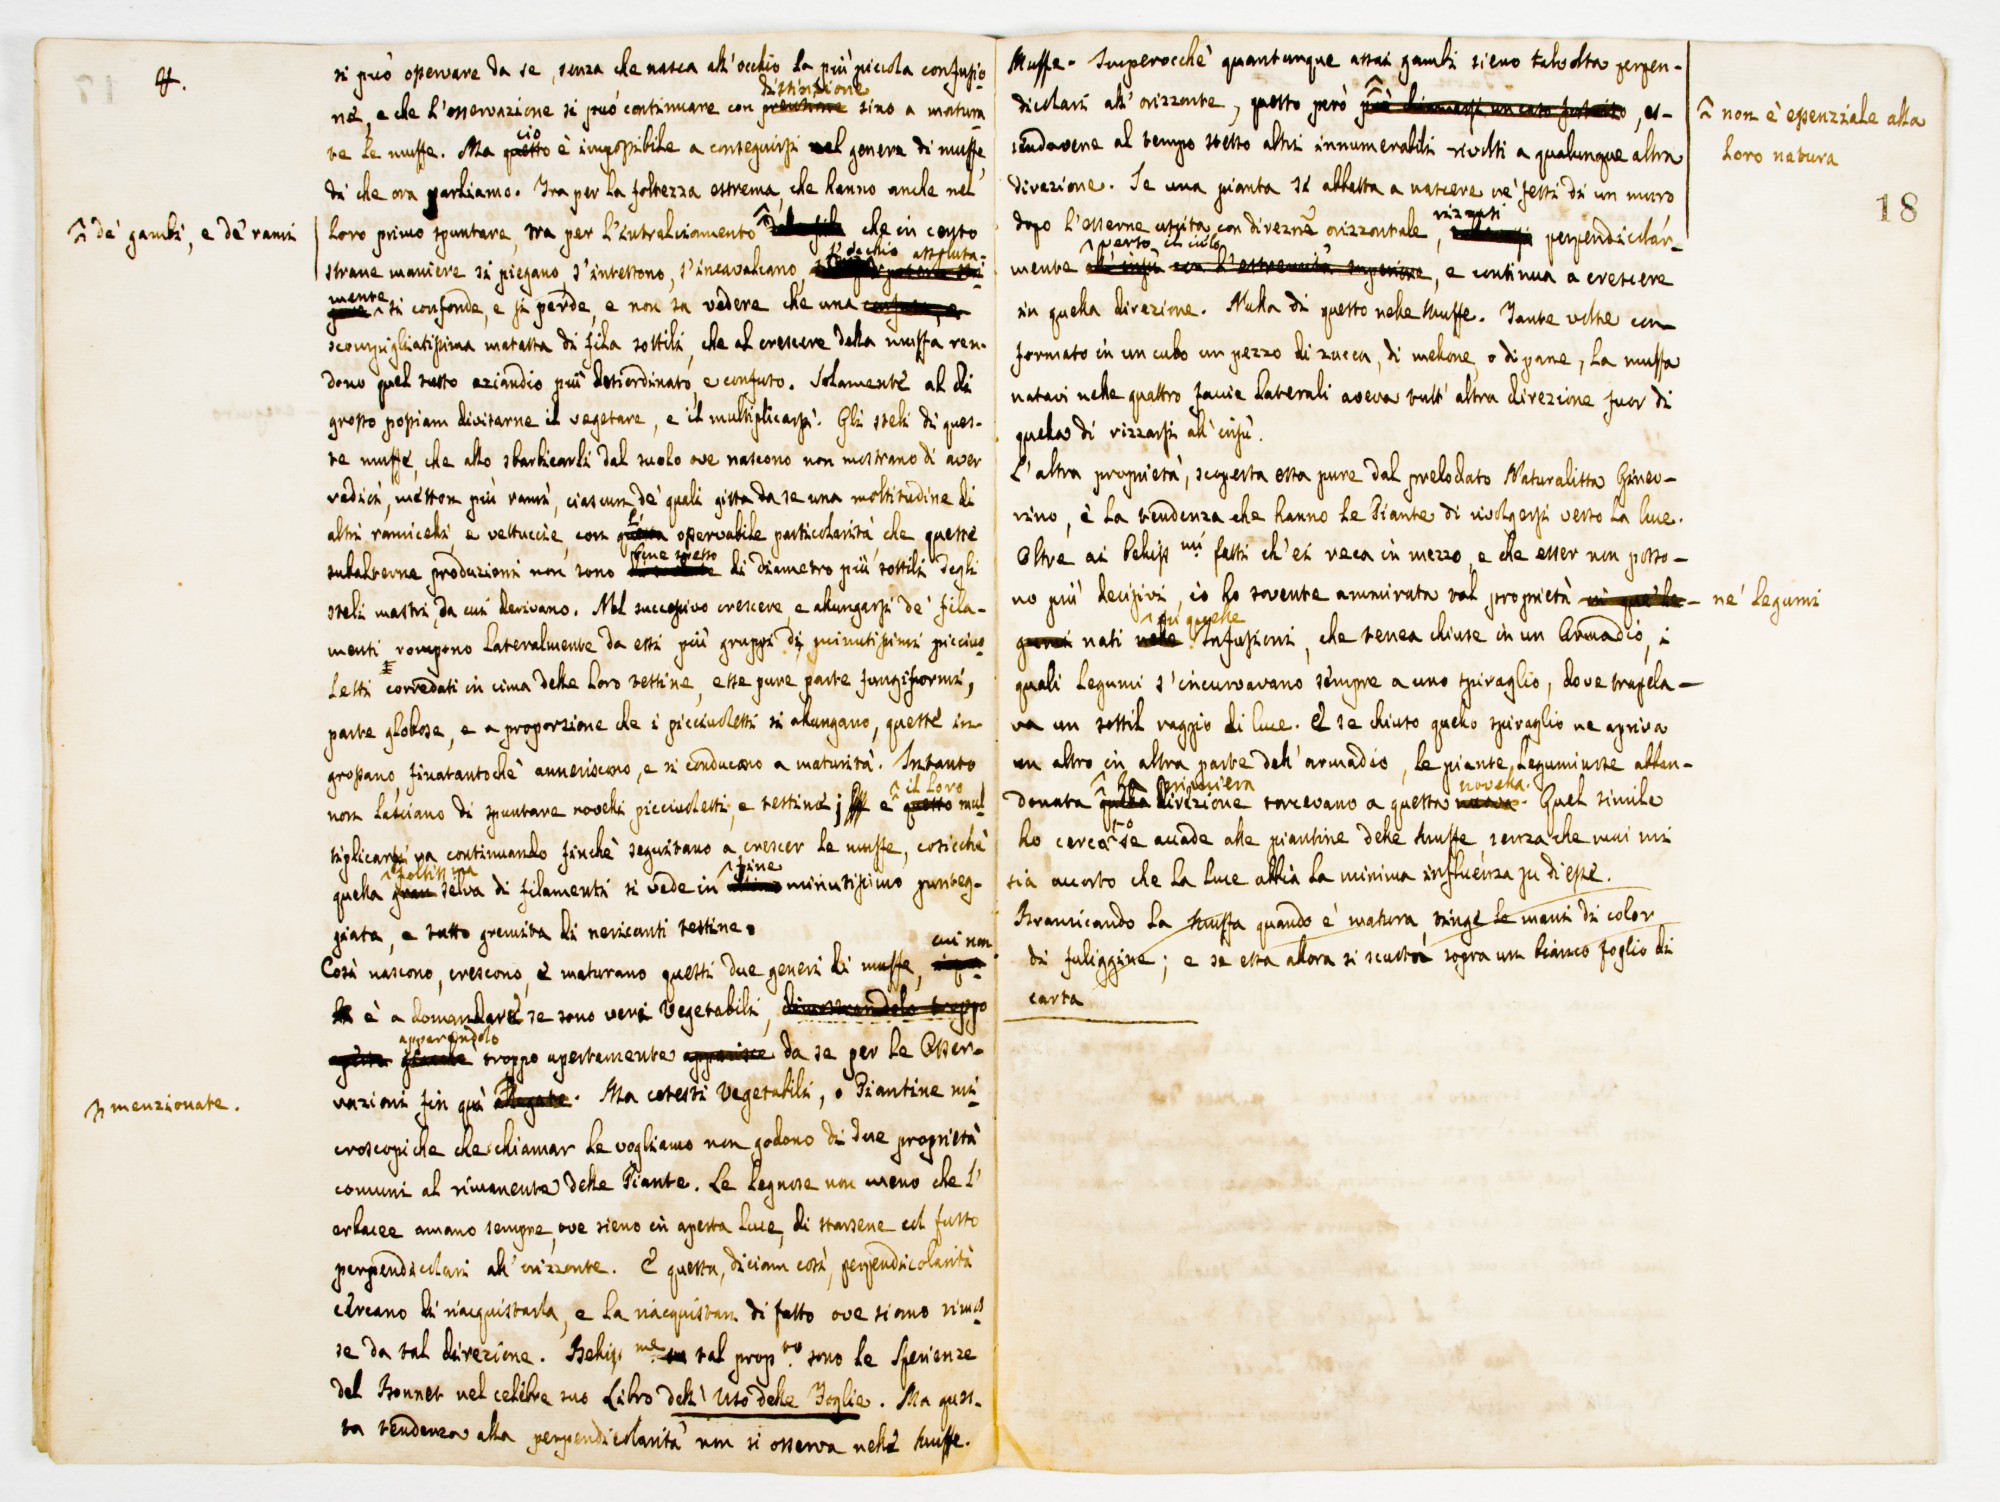 4.
si può osservare da se, senza che nasca all'occhio la più piccola confusio
distinzione
ne, e che l'osservazione si può continuare con precisione sino a matura
cio
te le muffe. Ma questo è impossibile a conseguirsi nel genere di muffe,
di che ora parliamo. Tra per la foltezza estrema, che hanno anche nel
de' gambi, e de' rami
loro primo spuntare, tra per l'intralciamento che in cento
l'occhio assoluta-
strane maniere si piegano, s'intessono, s'incavalcano,
mente
si confonde, e si perde, e non sa vedere che una confusa, e
scompigliatissima matassa di fila sottili, che al crescere della muffa ren-
dono quel tutto eziandio più disordinato, e confuso. Solamente al di
grosso possiam divisarne il vegetare, e il multiplicarsi. Gli steli di ques-
te muffe, che allo sbarbicarli dal suolo ove nascono non mostrano di aver
radici, metton più rami, ciascun de' quali gitta da se una moltitudine di
altri ramicelli, e vettuccie, con questa osservabile particolarità, che queste
bene spesso
subalterne produzioni non sono di diametro più sottili degli
steli mastri, da cui derivano. Nel successivo crescere, e allungarsi de' fila-
menti rompono lateralmente da essi più gruppi di minutissimi picciuo
letti corredati in cima delle loro testine, esse pure parte fungiformi,
parte globose, e a proporzione che i picciuoletti si allungano, queste in-
grossano, finatantochè anneriscono, e si conducono a maturità. Intanto
il loro
non lasciano di spuntare novelli picciuoletti, e testine; e questo mul
tiplicarsi va continuando finchè seguitano a crescer le muffe, cosicchè
foltissima
fine
quella gran selva di filamenti si vede in ultimo minutissimo punteg-
giata, e tutta gremita di nericanti testine.
cui non
Così nascono, crescono, e maturano questi due generi di muffe,
è a domandare se sono veri Vegetabili, dimostrandolo troppo
apparendolo
troppo apertamente apparisce da se per le Osser-
menzionate.
vazioni fin quì allegate. Ma cotesti Vegetabili, o Piantine mi
croscopiche che chiamar le vogliamo non godono di due proprietà
comuni al rimanente delle Piante. Le legnose non meno che l'
erbacee amano sempre, ove sieno in aperta luce, di starsene col fusto
perpendicolari all'orizzonte. E questa, diciam così, perpendicolarità
cercano di riacquistarla, e la riacquistan di fatto ove siano rimos
se da tal direzione. Belliss.me su tal prop.to sono le Sperienze
del Bonnet nel celebre suo Libro dell'Uso delle Foglie. Ma ques-
ta tendenza alla perpendicolarità non si osserva nelle Muffe.
Muffe. Imperocchè quantunque assai gambi sieno talvolta perpen-
dicolari all'orizzonte, questo però può chiamarsi un caso fortuito, es-
non è essenziale alla
loro natura
18
sendovene al tempo stesso altri innumerabili rivolti a qualunque altra
direzione. Se una pianta si abbatta a nascere ne' fessi di un muro
rizzasi
dopo l'esserne uscita con direzne orizzontale, perpendicolar-
verso il cielo
mente all'insù con l'estremità superiore, e continua a crescere
in quella direzione. Nulla di questo nelle Muffe. Tante volte con-
formato in un cubo un pezzo di zucca, di mellone, o di pane, la muffa
natavi nelle quattro faccie laterali aveva tutt'altra direzione fuor di
quella di rizzarsi all'insù.
L'altra proprietà, scoperta essa pure dal prelodato Naturalista Ginev-
rino, è la tendenza che hanno le Piante di rivolgersi verso la luce.
Oltre ai belliss.mi fatti ch'ei reca in mezzo, e che esser non posso-
no più decisivi, io ho sovente ammirata tal proprietà in que' le-
ne' legumi
di quelle
gumi nati nelle Infusioni, che tenea chiuse in un Armadio, i
quali legumi s'incurvavano sempre a uno spiraglio, dove trapela-
va un sottil raggio di luce. E se chiuso quello spiraglio ne apriva
un altro in altra parte dell'armadio, le piante leguminose abban-
la primiera
novella.
donata quella direzione torcevano a questa nuova. Quel simile
ho cercato se accade alle piantine delle Muffe, senza che mai mi
sia accorto che la luce abbia la minima influenza su di esse.
Brancicando la Muffa quando è matura tinge le mani di color
di fuliggine; e se essa allora si scuota sopra un bianco foglio di
carta